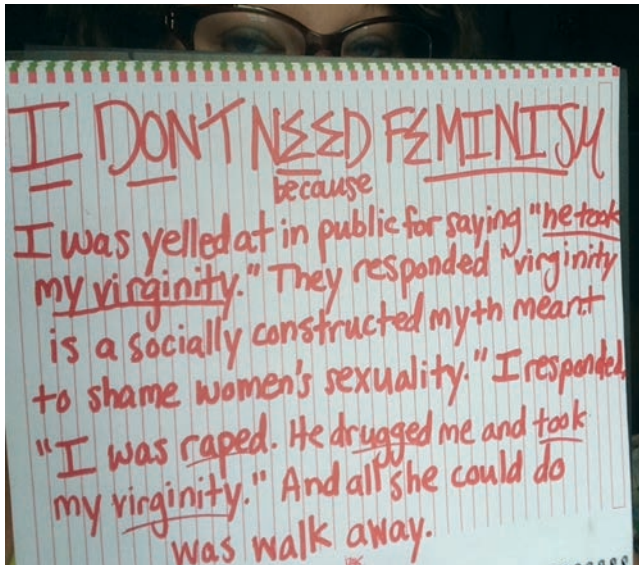 I DON'T NEED FEMINISM
because
I was yelled at in public for saying "he took
my virginity." They responded "virginity
is a socially constructed myth meant
to shame women's sexuality." I responded,
"I was raped. He drugged me and took
my virginity." And all she could do
was walk away.